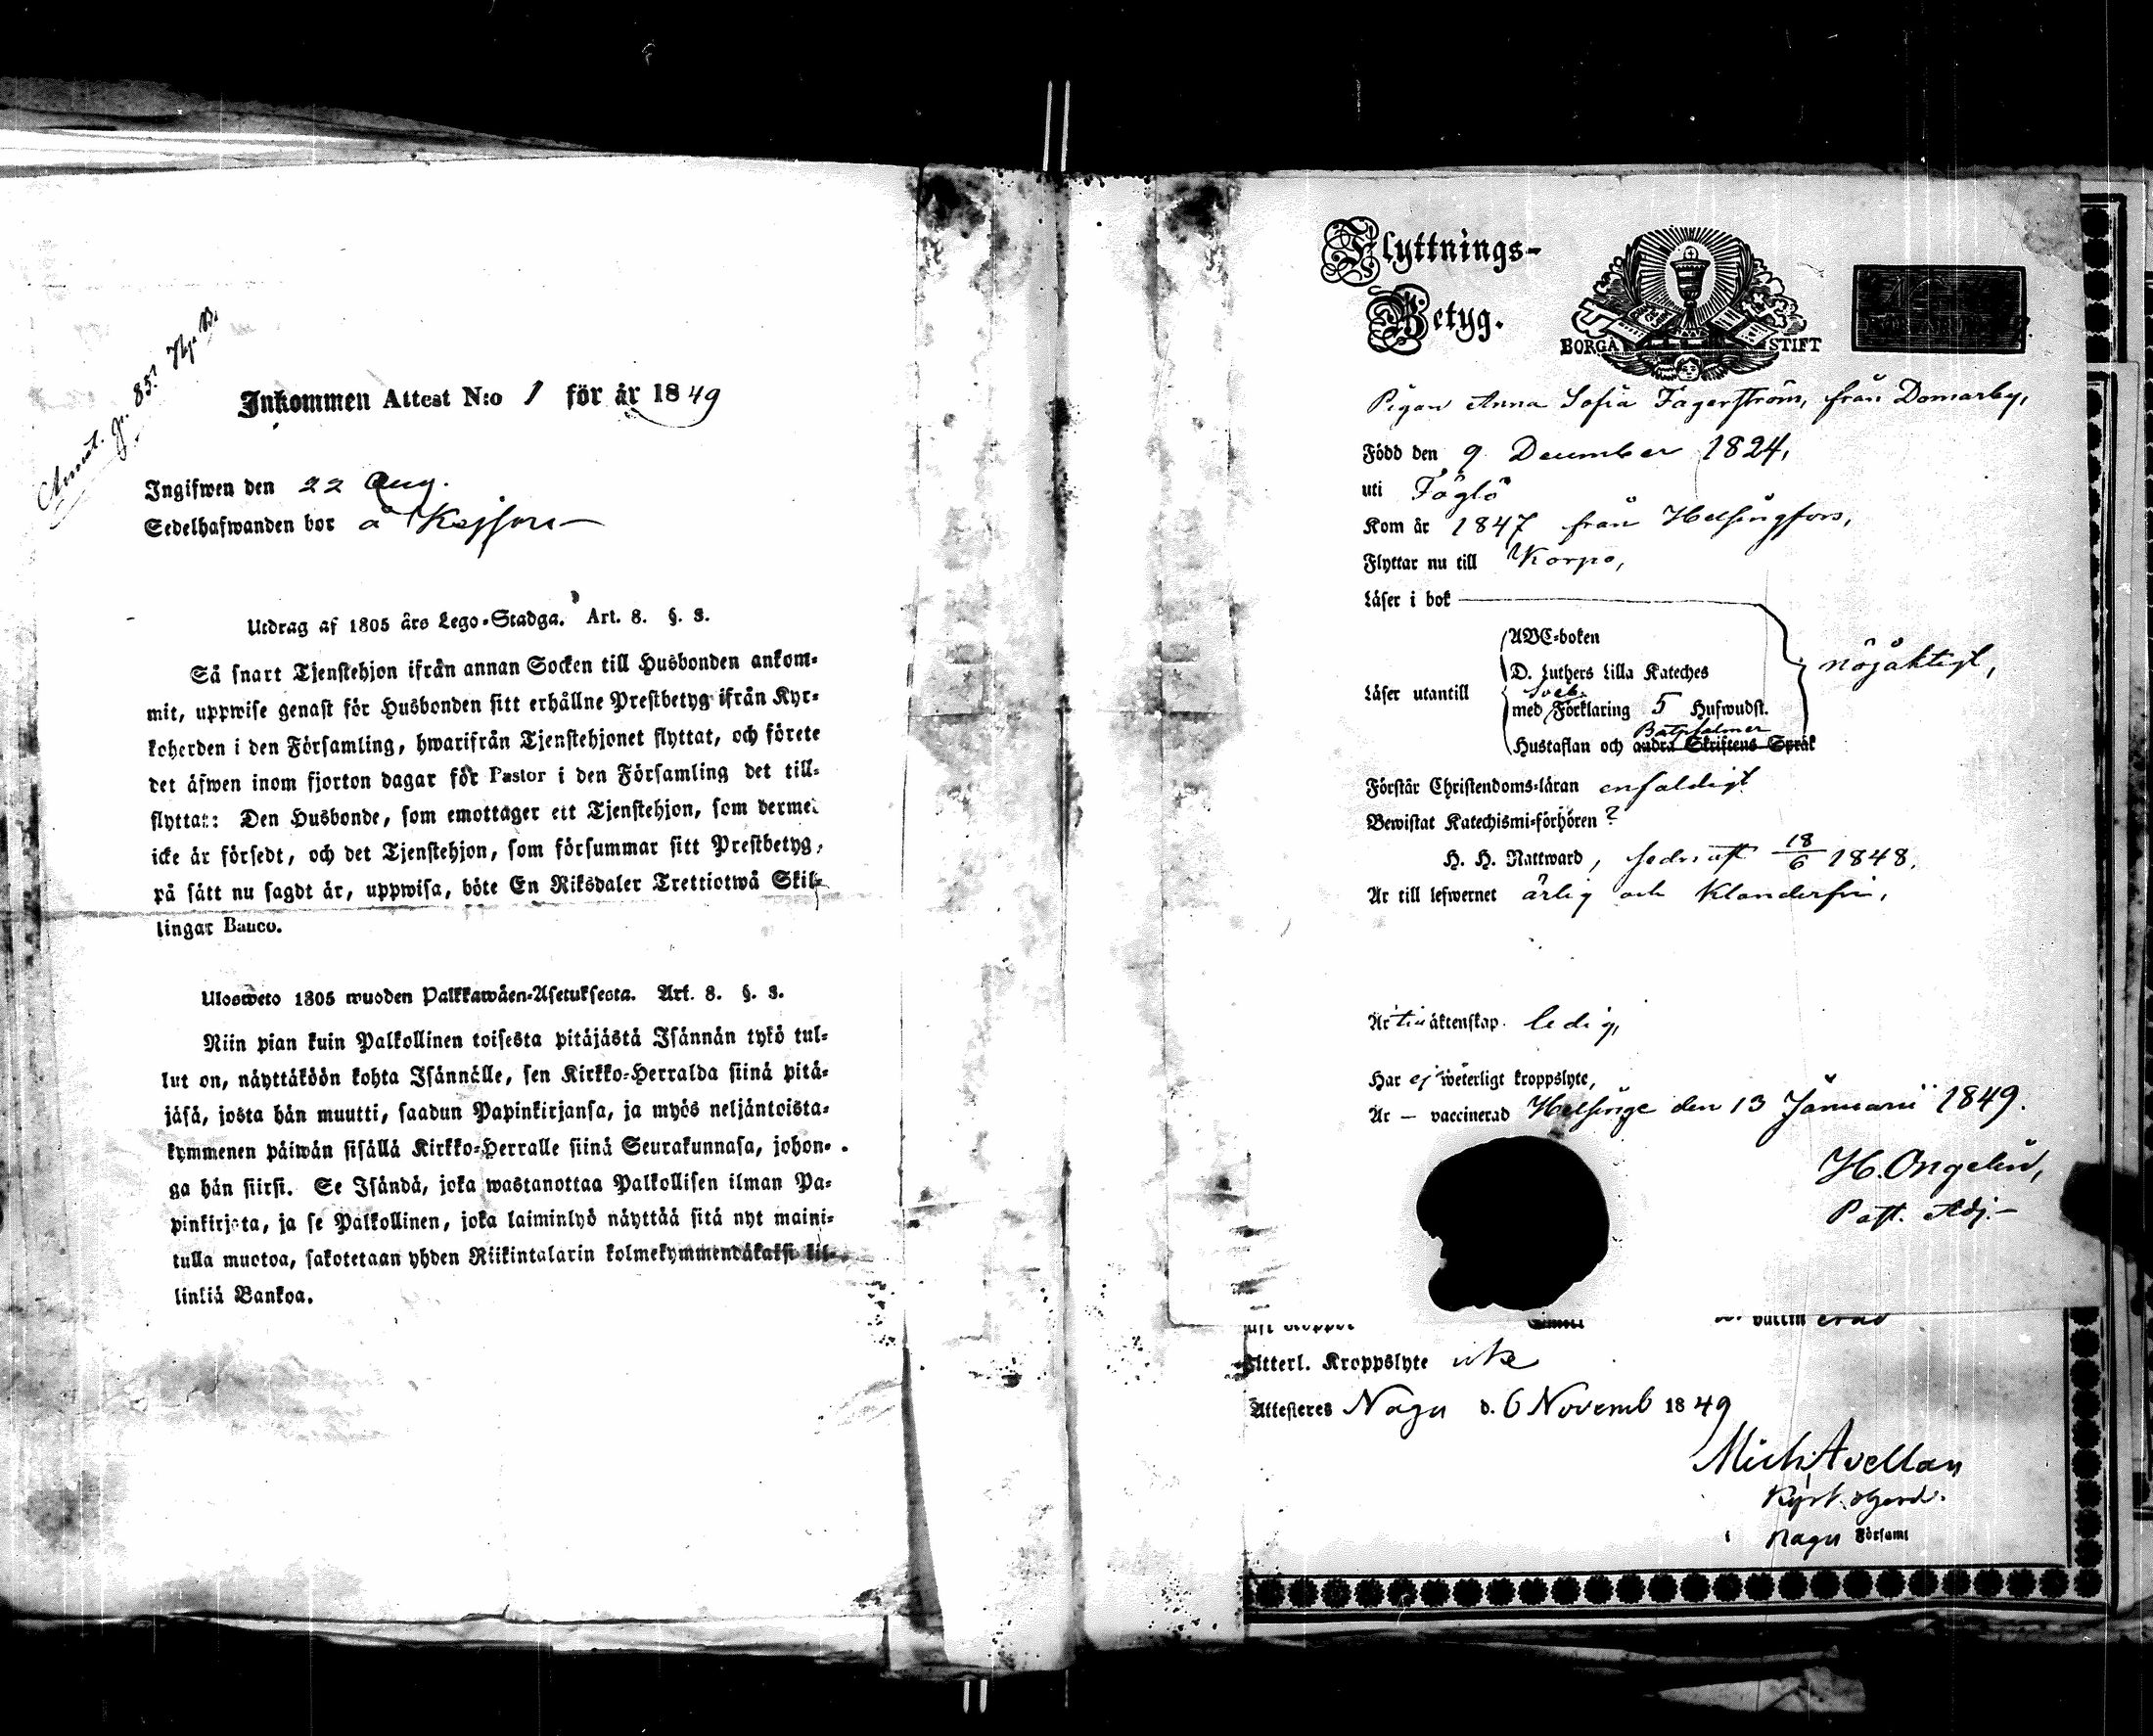 Inkommen Attest N:o 1 för år 1849
Ingifwen den 22 Aug.
Sedelhafwanden bor å
Utdrag af 1805 års Lego-Stadga. Art. 8. §. 3.
Så snart Tjenstehjon ifrån annan Socken till Husbonden ankom-
mit, uppwise genast för Husbonden sitt erhållne Prestbetyg ifrån Kyr-
koherden i den Församling, hwarifrån Tjenstehjonet flyttat, och förete
det äfwen inom fjorton dagar för Pastor i den Församling det till-
flyttat: Den Husbonde, som emottager ett Tjenstehjon, som dermed
icke är försedt, och det Tjenstehjon, som försummar sitt Prestbetyg,
på sätt nu sagdt är, uppwisa, böte En Riksdaler Trettiotwå Skil-
lingar Banco.
Ulosweto 1805 wuoden Palkkawäen-Asetuksesta. Art. 8. §. 3.
Niin pian kuin Palkollinen toisesta pitäjästä Isännän tykö tul-
lut on, näyttäköön kohta Isännälle, sen Kirkko-Herralda siinä pitä-
jäsä, josta hän muutti, saadun Papinkirjansa, ja myös neljäntoista-
kymmenen päiwän sisällä Kirkko-Herralle siinä Seurakunnasa, johon-
ga hän siirsi. Se Isändä, joka wastanottaa Palkollisen ilman Pa-
pinkirjata, ja se Palkollinen, joka laiminlyö näyttää sitä nyt maini-
tulla muotoa, sakotetaan yhden Riikintalarin kolmekymmendäkaksi kil-
linkiä Bankoa.
Flyttnings-
Betyg.
BORGÅ STIFT
Pigan Anna Sofia Fagerström, från Domarby,
Född den 9 December 1824,
uti Föglö
Kom år 1847 från Helsingfors,
Flyttar nu till Korpo,
Läser i bok
Läser utantill
ABC-boken
D. Luthers Lilla Kateches
Sveb.
med Förklaring 5 Hufwudst.
Botpsalmer
Hustaflan och andra Skriftens Språk
nöjaktigt,
Förstår Christendoms-läran enfaldigt
Bewistat Katechismi-förhören ?
H. H. Nattward, sednast 18/6 1848,
Är till lefwernet ärlig och klanderfri,
Är till äktenskap. ledig,
Har ej weterligt kroppslyte,
Är — vaccinerad Helsinge den 13 Januarii 1849.
H. Ongelin,
Past. Adj.
erad
Ytterl. Kroppslyte icke
Attesteras Nagu d. 6 Novemb 1849
Mich Avellan
Kyrkoherd.
i Nagu Förlaml